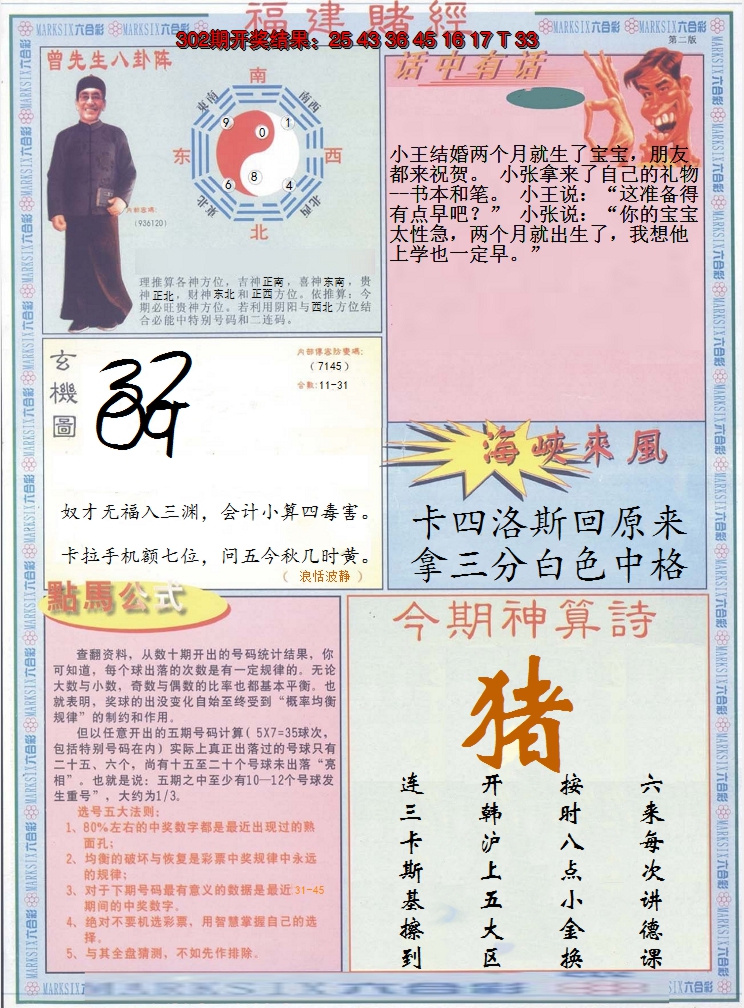 福建賭經
302期开奖结果：25 43 36 45 16 17 T 33
MARKSIX六合彩 MARKSIX六合彩
第二版
曾先生八卦阵
南
東南
南西
东
西
東北
西北
北
9
0
1
6
8
4
内部密碼:
(936120)
理推算各神方位，吉神正南，喜神东南，贵
神正北，财神东北和正西方位。依推算：今
期必旺贵神方位。若利用阴阳与西北方位结
合必能中特别号码和二连码。
话中有话
小王结婚两个月就生了宝宝，朋友
都来祝贺。 小张拿来了自己的礼物
一书本和笔。 小王说：“这准备得
有点早吧？” 小张说：“你的宝宝
太性急，两个月就出生了，我想他
上学也一定早。”
玄機圖
内部傳密防變碼:
(7145)
合数:11-31
奴才无福入三渊，会计小算四毒害。
卡拉手机额七位，问五今秋几时黄。
（ 浪恬波静 ）
海峽來風
卡四洛斯回原来
拿三分白色中格
點馬公式
查翻资料，从数十期开出的号码统计结果，你
可知道，每个球出落的次数是有一定规律的。无论
大数与小数，奇数与偶数的比率也都基本平衡。也
就表明，奖球的出没变化自始至终受到“概率均衡
规律”的制约和作用。
但以任意开出的五期号码计算( 5X7=35球次，
包括特别号码在内)实际上真正出落过的号球只有
二十五、六个，尚有十五至二十个号球未出落“亮
相”。也就是说：五期之中至少有10—12个号球发
生重号”，大约为1/3。
选号五大法则：
1、80%左右的中奖数字都是最近出现过的熟
面孔；
2、均衡的破坏与恢复是彩票中奖规律中永远
的规律；
3、对于下期号码最有意义的数据是最近31-45
期间的中奖数字。
4、绝对不要机选彩票，用智慧掌握自己的选
择。
5、与其全盘猜测，不如先作排除。
今期神算詩
猪
六来每次讲德课
按时八点小金换
开韩沪上五大区
连三卡斯基擦到